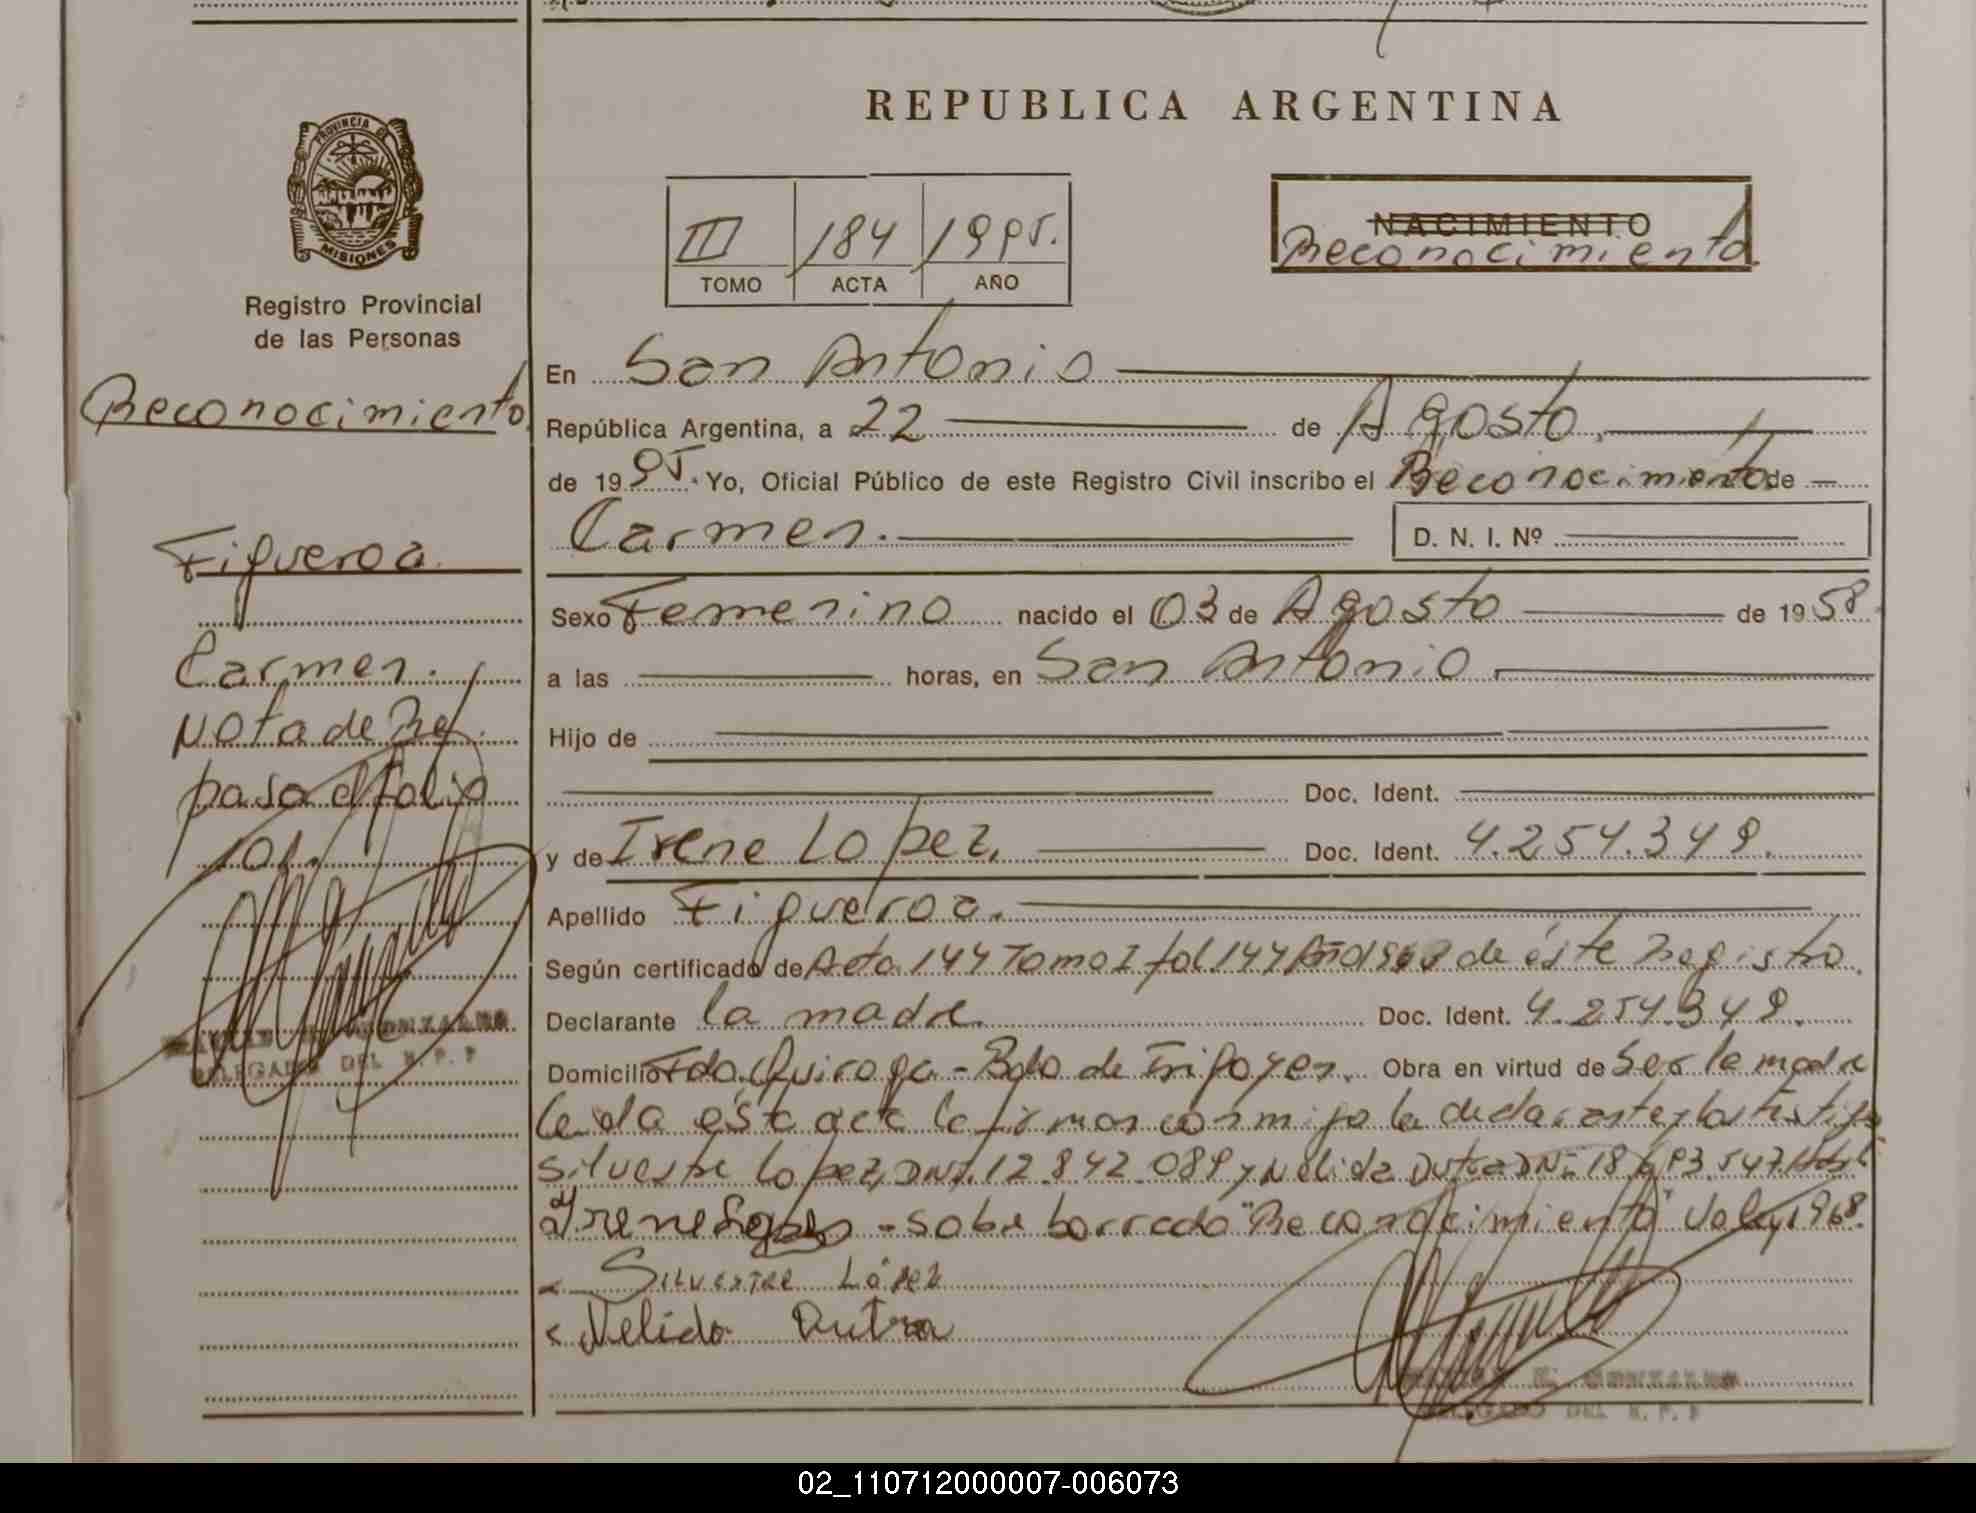 REPUBLICA ARGENTINA
PROVINCIA DE
MISIONES
Registro Provincial
de las Personas
III 184 1995.
TOMO ACTA AÑO
NACIMIENTO
Reconocimiento
Reconocimiento
Figueroa
Carmen.
Nota de Ref.
pasa al folio
En San Antonio
República Argentina, a 22 de Agosto.
de 1995. Yo, Oficial Público de este Registro Civil inscribo el Reconocimiento de
Carmen. D. N. I. Nº
Sexo Femenino nacido el 03 de Agosto de 1958.
a las horas, en San Antonio
Hijo de
Doc. Ident.
y de Irene Lopez. Doc. Ident. 4.254.349.
Apellido Figueroa.
Según certificado de Acta 144 Tomo I fol. 144 Año de éste Registro.
Declarante la madre. Doc. Ident. 4.254.349.
Domicilio Fdo. Quiroga - Bdo de Irigoyen. Obra en virtud de ser la madre
Leida ésta acta la firman conmigo la declarante y los testigos
Silvestre Lopez, DNI. 12.842.089 y Nelida Dutra DNI 18.693.547.
Irene Lopez - sobre borrado "Reconocimiento" Vale, 1968.
Silvestre López
Nelida Dutra
GONZALEZ
DELEGADO DEL R. P. P
GONZALEZ
DELEGADO DEL R. P. P
02_110712000007-006073